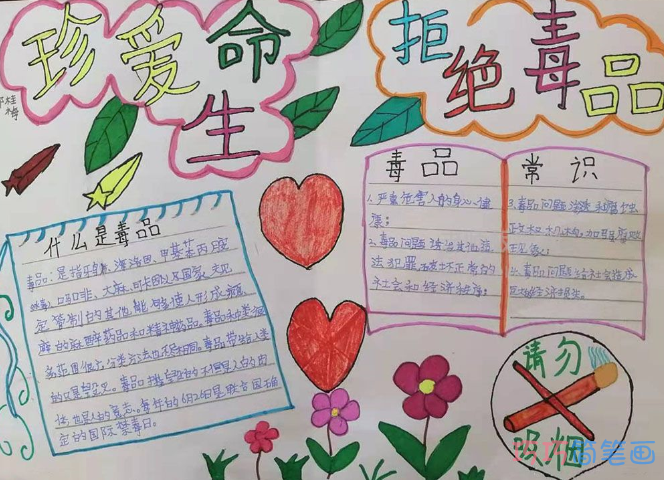 珍爱生命
拒绝毒品
桂梅
什么是毒品
毒品:是指鸦片、海洛因、甲基苯丙胺
吗啡、大麻、可卡因以及国家
定管制的其他能够使人形成瘾
癖的麻醉药品和精神药品。毒品种类
分类方法也不相同。毒品带给人类
的只是毁灭。毒品摧毁的不但是人的肉
体,也是人的意志。每年的6月26日是联合国确
定的国际禁毒日。
毒品
1、严重危害人的身心健
康;
2、毒品问题诱发其他违
法犯罪,破坏正常的
社会和经济秩序;
常识
3、毒品问题渗透和腐蚀
政权机构,加剧腐败
现象;
4、毒品问题给社会造成
巨大经济损失。
请勿
吸烟
巧巧简笔画